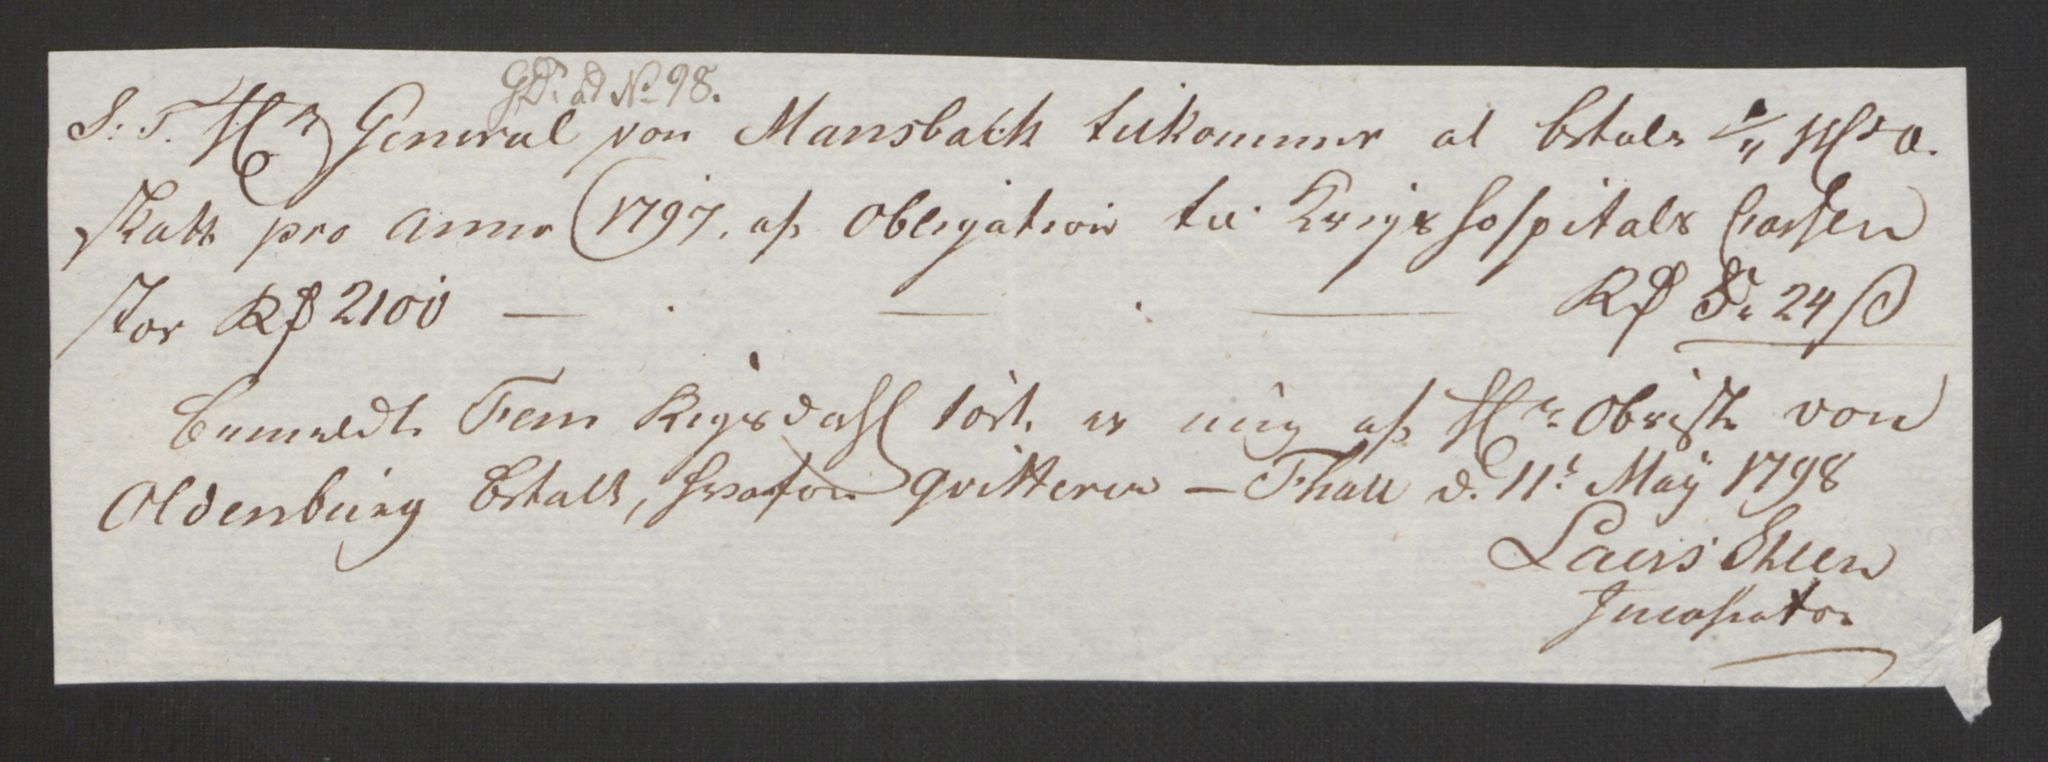 GD. ad No 98.
S: T. Hr General von Mansbach tilkommer at betale
Skatt pro Anno 1797. af Obligation til Krigs hospitals Cassen
stor Rd 2100 — . — . — Rd 5„ 24 ß
bemeldte Fem Rigsdahl 24 ß er mig af Hr Obriste von
Oldenburg betalt, hvorfore qvitterer — Fhald d. 11t May 1798
Laurs Ehlen